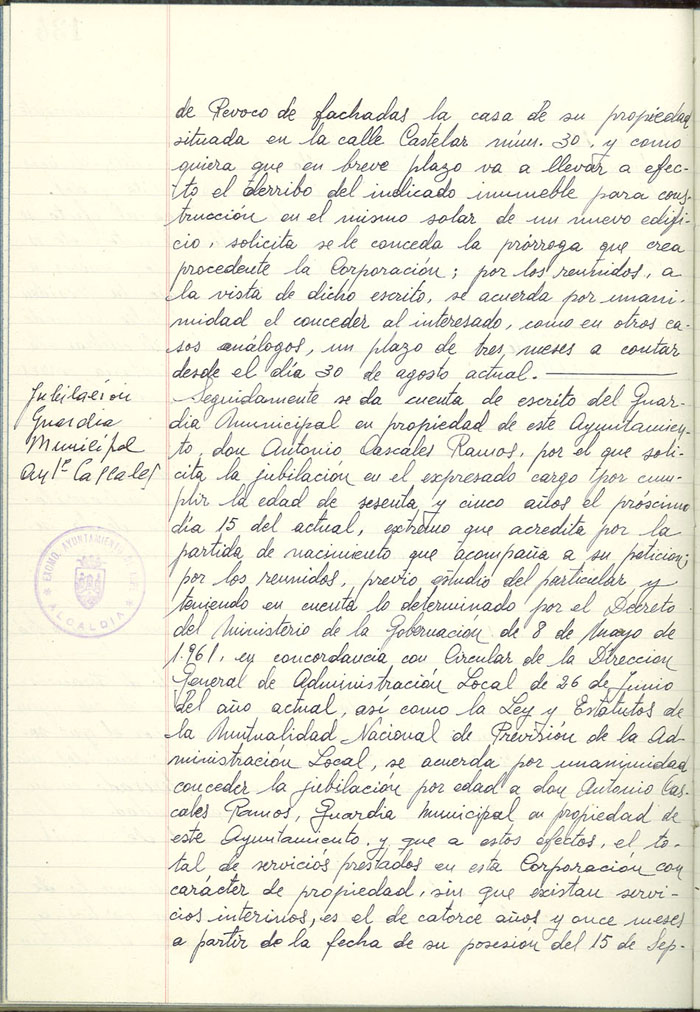 de Revoco de fachadas la casa de su propiedad
situada en la calle Castelar núm. 30, y como
quiera que en breve plazo va a llevar a efec-
to el derribo del indicado inmueble para cons-
trucción en el mismo solar de un nuevo edifi-
cio, solicita se le conceda la prórroga que crea
procedente la Corporación; por los reunidos, a
la vista de dicho escrito, se acuerda por unani-
midad el conceder al interesado, como en otros ca-
sos análogos, un plazo de tres meses a contar
desde el día 30 de agosto actual.
Jubilación
Guardia
Municipal
Antº Cascales
Seguidamente se da cuenta de escrito del Guar-
dia Municipal en propiedad de este Ayuntamien-
to, don Antonio Cascales Ramos, por el que soli-
cita la jubilación en el expresado cargo por cum-
plir la edad de sesenta y cinco años el próscimo
día 15 del actual, extremo que acredita por la
partida de nacimiento que acompaña a su peticion;
por los reunidos, previo estudio del particular y
teniendo en cuenta lo determinado por el Decreto
del Ministerio de la Gobernación de 8 de Mayo de
1.961, en concordancia con Circular de la Direccion
General de Administración Local de 26 de Junio
del año actual, así como la Ley y Estatutos de
la Mutualidad Nacional de Previsión de la Ad-
ministración Local, se acuerda por unanimidad
conceder la jubilación por edad a don Antonio Cas-
cales Ramos, Guardia Municipal en propiedad de
este Ayuntamiento, y que a estos efectos, el to-
tal, de servicios prestados en esta Corporación con
carácter de propiedad, sin que existan servi-
cios interinos, es el de catorce años y once meses
a partir de la fecha de su posesión del 15 de Sep-
EXCMO. AYUNTAMIENTO DE
ALCALDIA